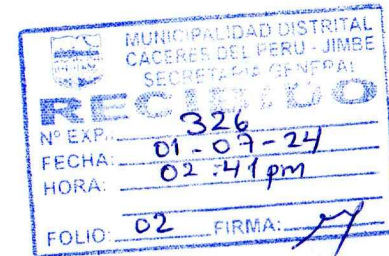 MUNICIPALIDAD DISTRITAL
CACERES DEL PERU - JIMBE
SECRETARIA GENERAL
RECIBIDO
Nº EXP.: 326
FECHA: 01-07-24
HORA: 02:41 pm
FOLIO: 02 FIRMA: